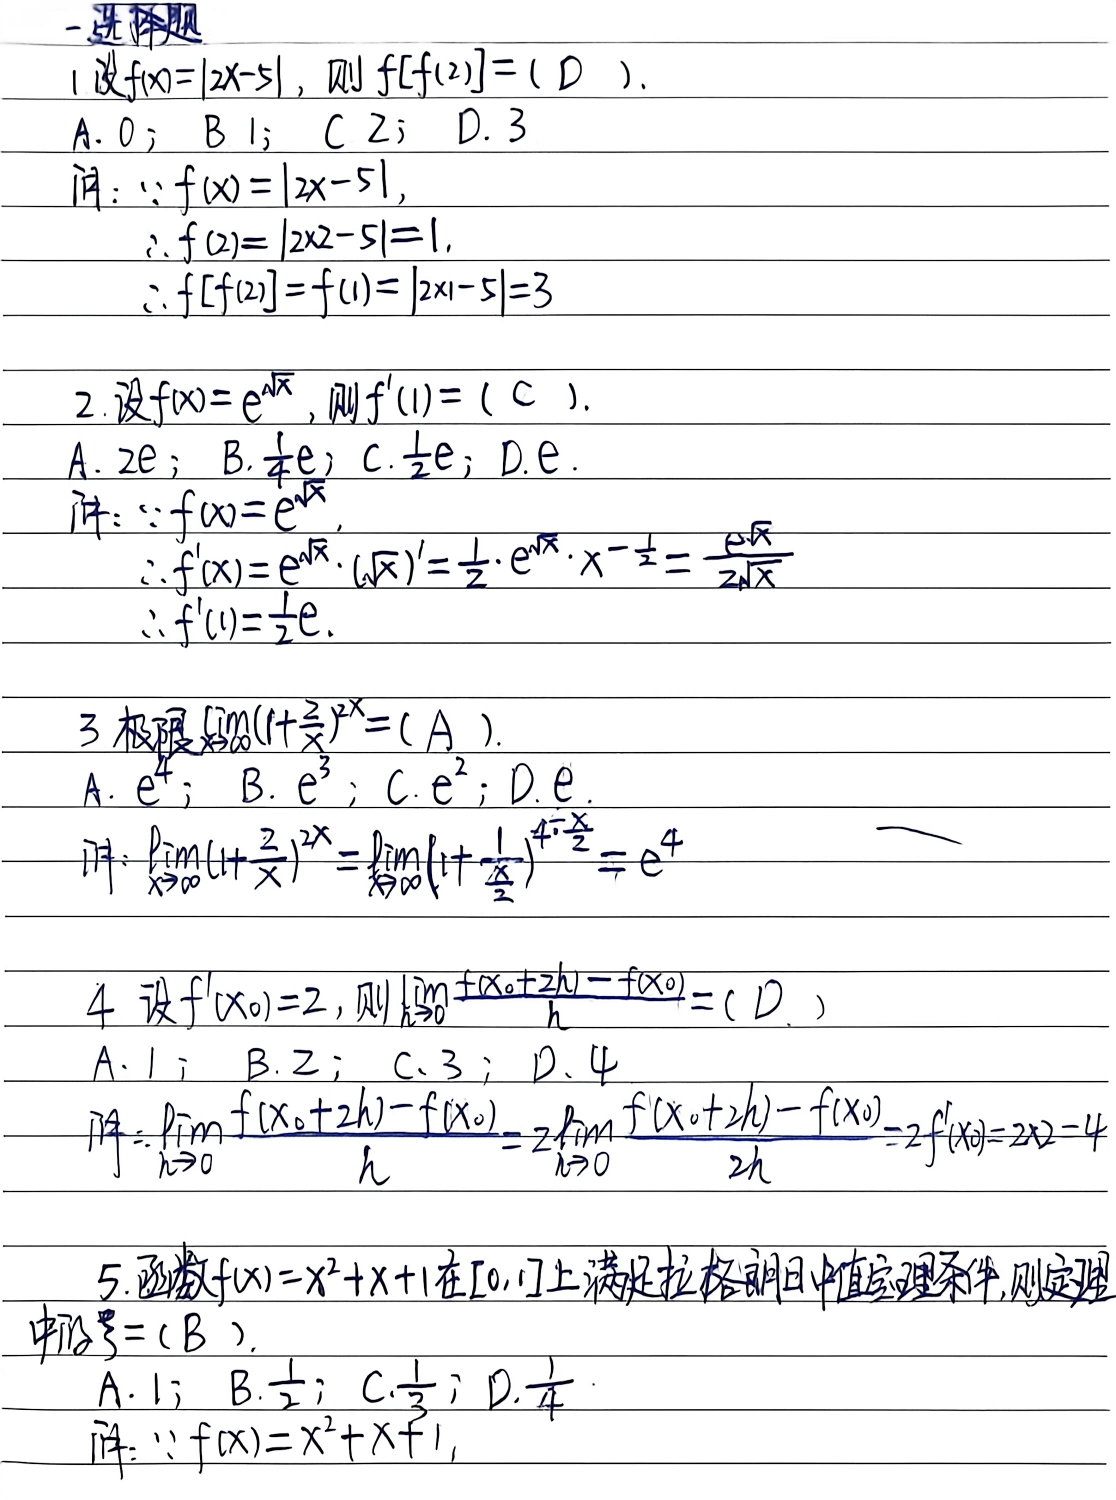 一选择题
1.设f(x)=|2x-5|, 则 f[f(2)]=( D ).
A. 0; B 1; C 2; D. 3
解: ∵ f(x)=|2x-5|,
∴ f(2)=|2×2-5|=1.
∴ f[f(2)]=f(1)=|2×1-5|=3
2.设f(x)=e^{√x}, 则f'(1)=( C ).
A. 2e; B. 1/4 e; C. 1/2 e; D. e.
解: ∵ f(x)=e^{√x},
∴ f'(x)=e^{√x}·(√x)'=1/2·e^{√x}·x^{-1/2}=e^{√x}/(2√x)
∴ f'(1)=1/2 e.
3 极限 lim_{x→∞}(1+2/x)^{2x}=( A ).
A. e^4; B. e^3; C. e^2; D. e.
解: lim_{x→∞}(1+2/x)^{2x}=lim_{x→∞}(1+1/(x/2))^{4·x/2}=e^4
4 设f'(x₀)=2, 则 lim_{h→0} (f(x₀+2h)-f(x₀))/h=( D. )
A. 1; B. 2; C、3; D、4
解: lim_{h→0} (f(x₀+2h)-f(x₀))/h=2lim_{h→0} (f(x₀+2h)-f(x₀))/2h=2f'(x₀)=2×2=4
5.函数f(x)=x²+x+1在[0,1]上满足拉格朗日中值定理条件,则定理
中的ξ=( B ).
A. 1; B. 1/2; C. 1/3; D. 1/4
解: ∵ f(x)=x²+x+1,